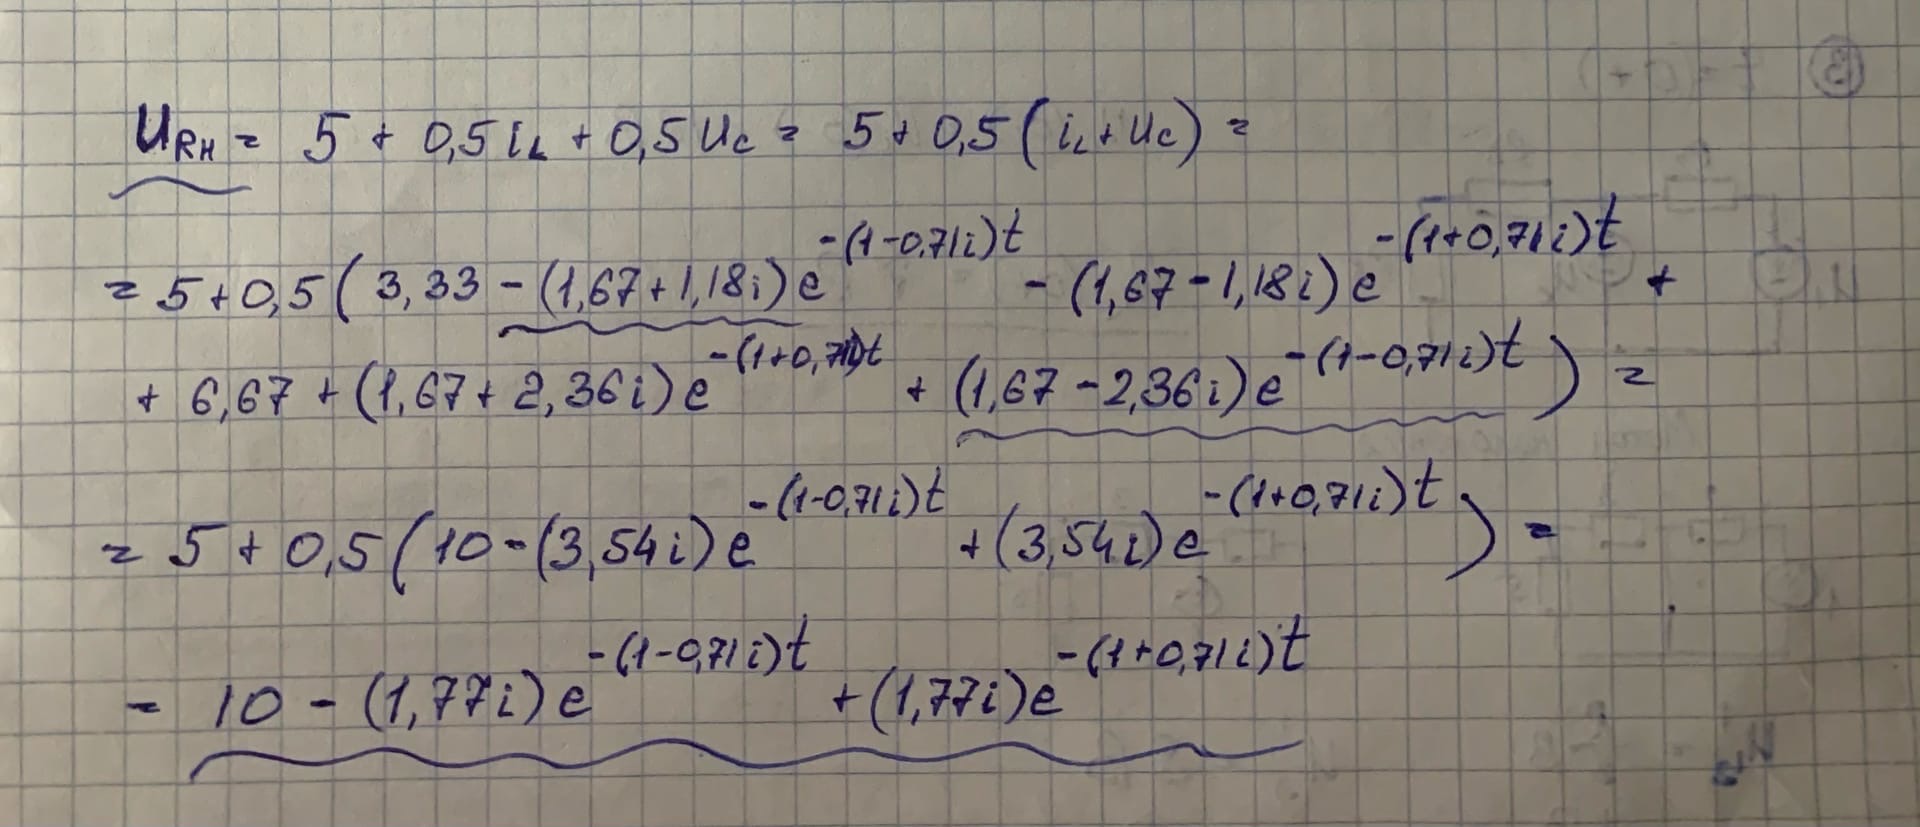 U_RH = 5 + 0,5 i_L + 0,5 U_C = 5 + 0,5 (i_L + U_C) =
= 5 + 0,5 ( 3,33 - (1,67 + 1,18i) e^-(1-0,71i)t - (1,67 - 1,18i) e^-(1+0,71i)t +
+ 6,67 + (1,67 + 2,36i) e^-(1+0,71i)t + (1,67 - 2,36i) e^-(1-0,71i)t ) =
= 5 + 0,5 ( 10 - (3,54i) e^-(1-0,71i)t + (3,54i) e^-(1+0,71i)t ) =
= 10 - (1,77i) e^-(1-0,71i)t + (1,77i) e^-(1+0,71i)t